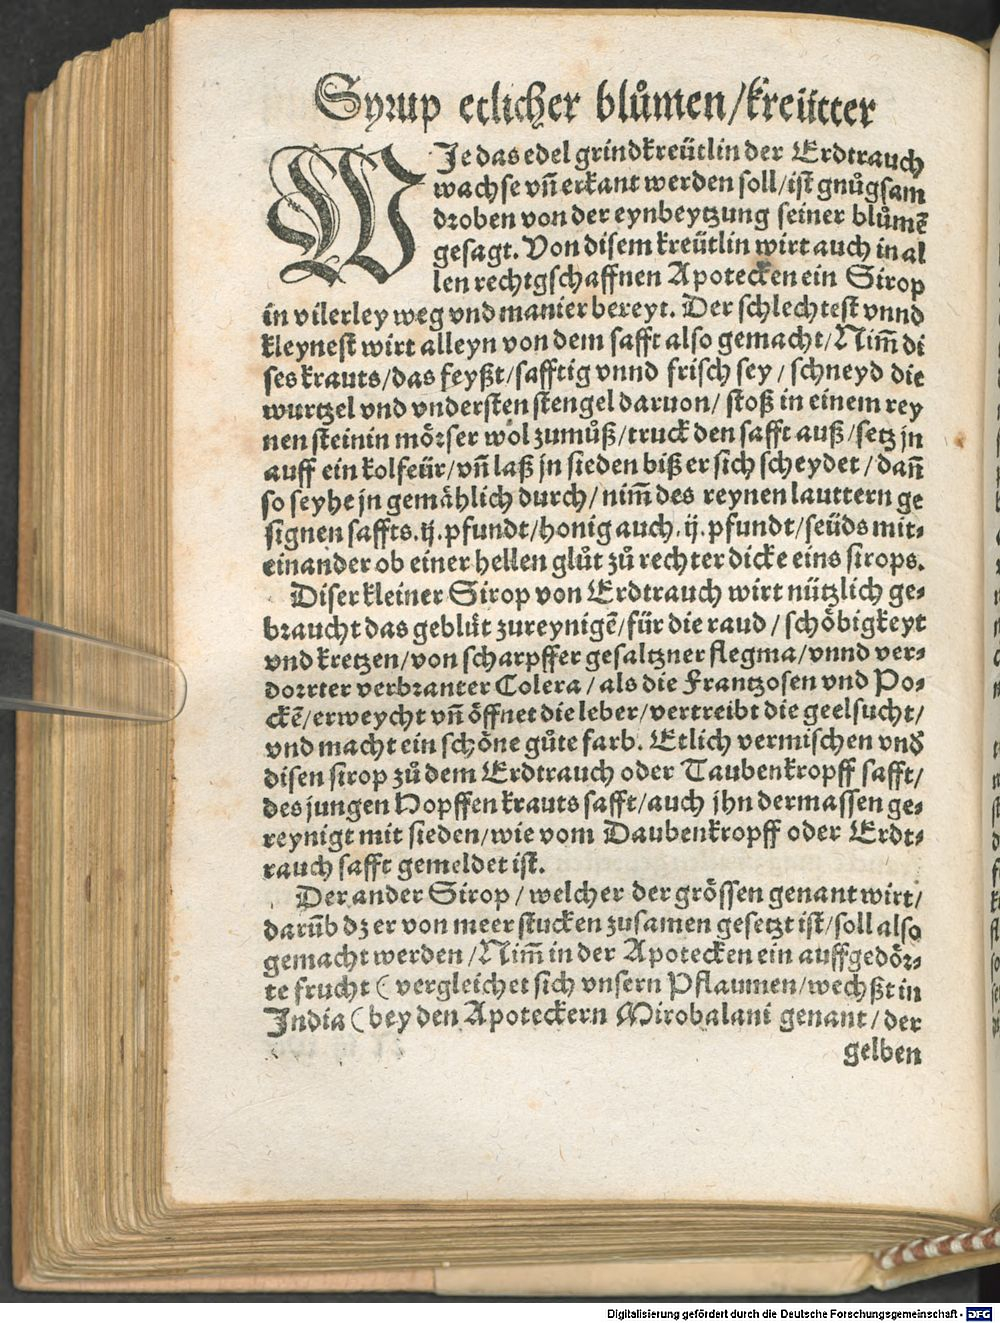 Syrup etlicher blůmen/kreütter
WJe das edel grindkreütlin der Erdtrauch
wachse vñ erkant werden soll/ist gnůgsam
droben von der eynbeytzung seiner blůmẽ
gesagt. Von disem kreütlin wirt auch in al
len rechtgschaffnen Apotecken ein Sirop
in vilerley weg vnd manier bereyt. Der schlechtest vnnd
kleynest wirt alleyn von dem safft also gemacht/Nim̃ di
ses krauts/das feyßt/safftig vnnd frisch sey/schneyd die
wurtzel vnd vndersten stengel daruon/ stoß in einem rey
nen steinin mörser wol zumůß/truck den safft auß/setz jn
auff ein kolfeür/vñ laß jn sieden biß er sich scheydet/dañ
so seyhe jn gemählich durch/nim̃ des reynen lauttern ge
signen saffts.ij.pfundt/honig auch.ij.pfundt/seüds mit⸗
einander ob einer hellen glůt zů rechter dicke eins sirops.
Diser kleiner Sirop von Erdtrauch wirt nützlich ge⸗
braucht das geblüt zureynigẽ/für die raud/schöbigkeyt
vnd kretzen/von scharpffer gesaltzner flegma/vnnd ver⸗
dorrter verbranter Colera/als die Frantzosen vnd Po⸗
ckẽ/erweycht vñ öffnet die leber/vertreibt die geelsucht/
vnd macht ein schöne gůte farb. Etlich vermischen vnd̕
disen sirop zů dem Erdtrauch oder Taubenkropff safft/
des jungen Hopffenkrauts safft/auch jhn dermassen ge⸗
reynigt mit sieden/wie vom Daubenkropff oder Erdt⸗
rauch safft gemeldet ist.
Der ander Sirop/welcher der grössen genant wirt/
darũb dz er von meer stucken zusamen gesetzt ist/soll also
gemacht werden/Nim̃ in der Apotecken ein auffgedör⸗
te frucht (vergleichet sich vnsern Pflaumen/wechßt in
India (bey den Apoteckern Mirobalani genant/der
gelben
Digitalisierung gefördert durch die Deutsche Forschungsgemeinschaft - DFG